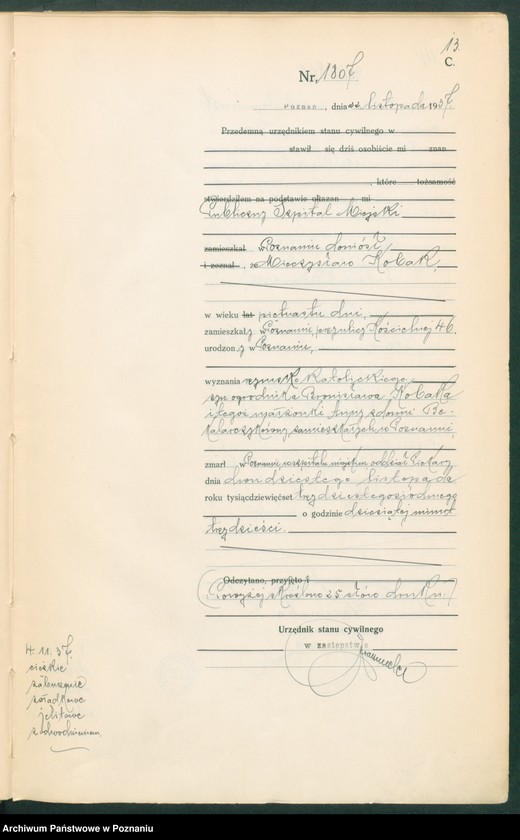 13.
C.
Nr. 1807.
Poznań, dnia listopada 1937.
Przedemną urzędnikiem stanu cywilnego w
stawił się dziś osobiście mi znan
, które tożsamość
stwierdziłem na podstawie okazan mi
Publiczny Szpital Miejski
zamieszkał w Poznaniu doniósł,
i zeznał, że Mieczysław Kobak,
w wieku lat piętnastu dni,
zamieszkał.y w Poznaniu, przy ulicy Kościelnej 46.
urodzon.y w Poznaniu,
wyznania rzymsko katolickiego
syn ogrodnika Bronisława Kobaka
i tegoż małżonki Anny z domu
zamieszkałych w Poznaniu,
zmarł w Poznaniu w szpitalu miejskim oddział
dnia listopada
roku tysiącdziewięćset trzydziestegosiódmego
o godzinie dziesiątej minut
trzydzieści.
Odczytano, przyjęto i
(Powyżej skreślono 25 słów druku.)
Urzędnik stanu cywilnego
w zastępstwie
4.11.37.
ciężkie
żołądkowe
jelitowe
Archiwum Państwowe w Poznaniu